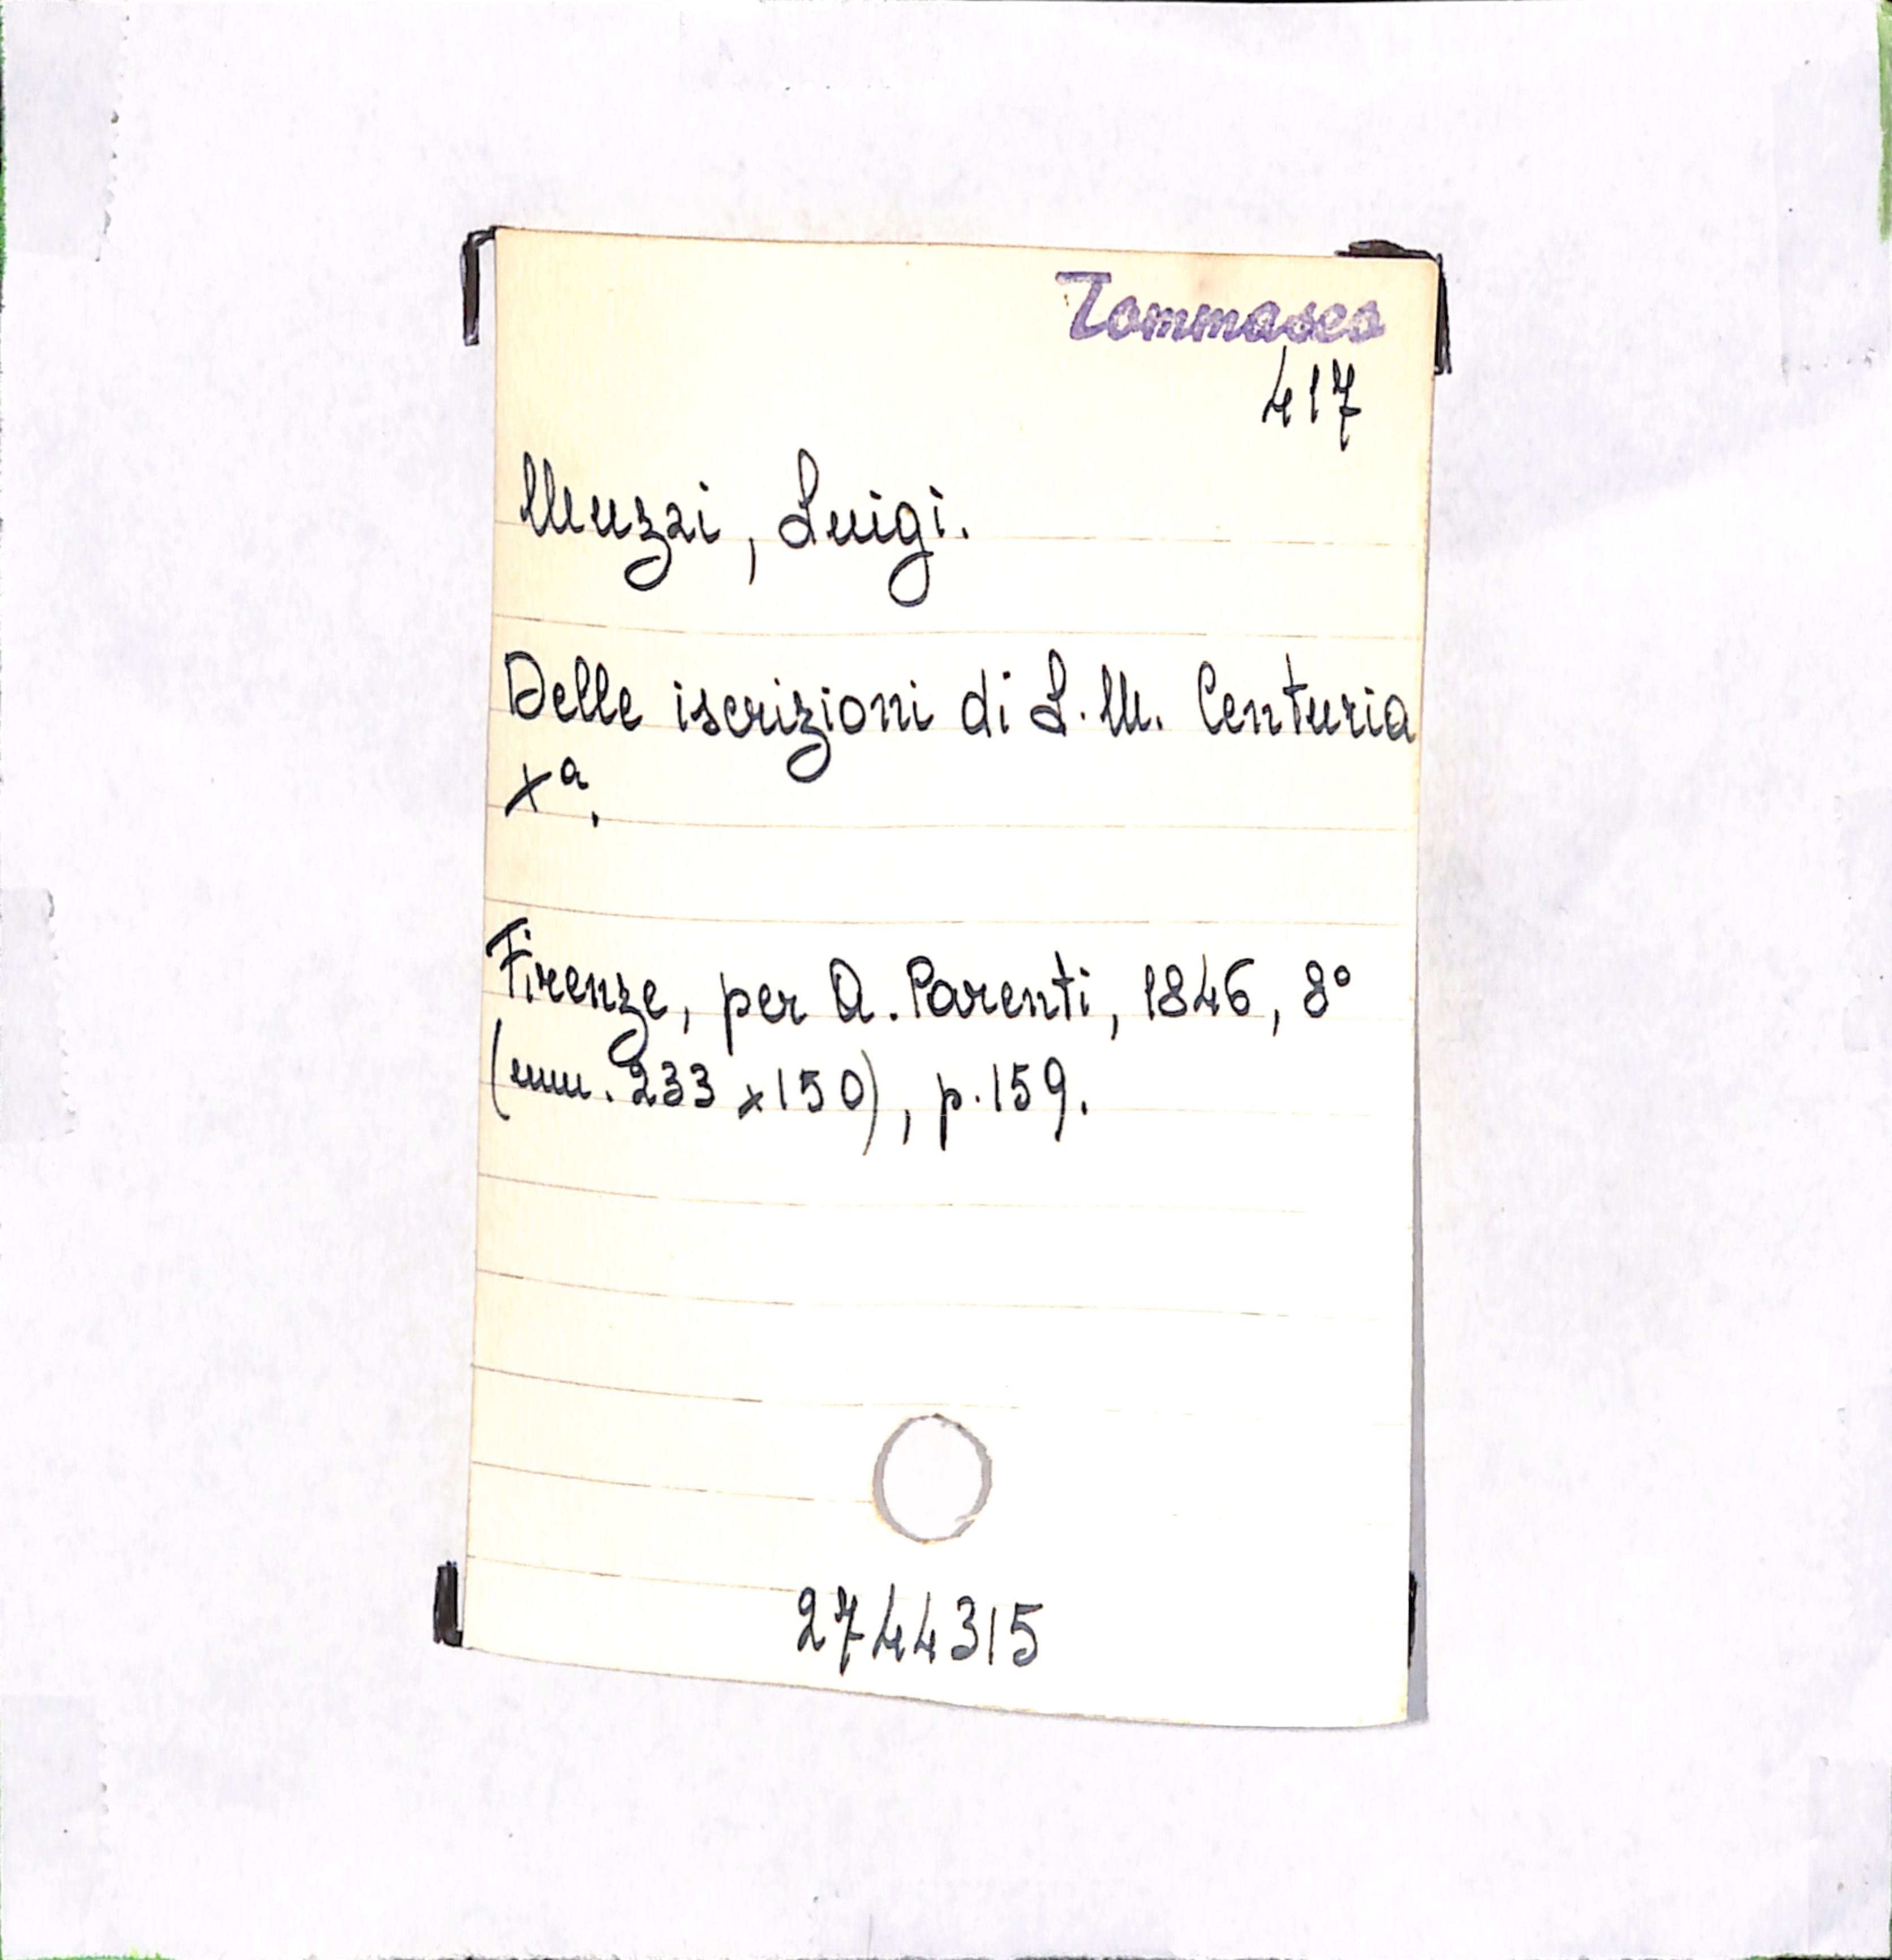 Tommaseo
417
Muzzi, Luigi.
Delle iscrizioni di L. M. Centuria
Xª.
Firenze, per A. Parenti, 1846, 8°
(mm. 233 x 150), p. 159.
2744315